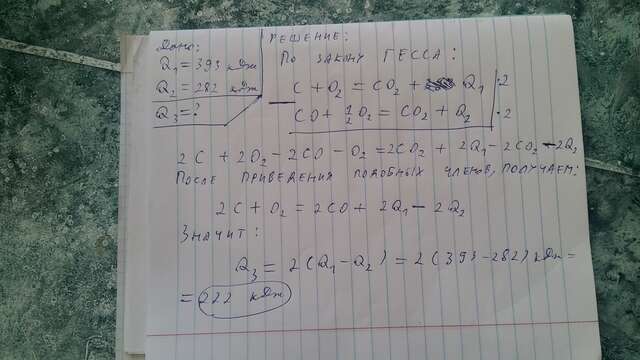 Дано:
Q₁ = 393 кДж
Q₂ = 282 кДж
Q₃ = ?
РЕШЕНИЕ:
ПО ЗАКОНУ ГЕССА:
C + O₂ = CO₂ + Q₁ | · 2
CO + 1/2 O₂ = CO₂ + Q₂ | · 2
2C + 2O₂ - 2CO - O₂ = 2CO₂ + 2Q₁ - 2CO₂ - 2Q₂
ПОСЛЕ ПРИВЕДЕНИЯ ПОДОБНЫХ ЧЛЕНОВ, ПОЛУЧАЕМ:
2C + O₂ = 2CO + 2Q₁ - 2Q₂
ЗНАЧИТ:
Q₃ = 2(Q₁ - Q₂) = 2(393 - 282) кДж =
= 222 кДж